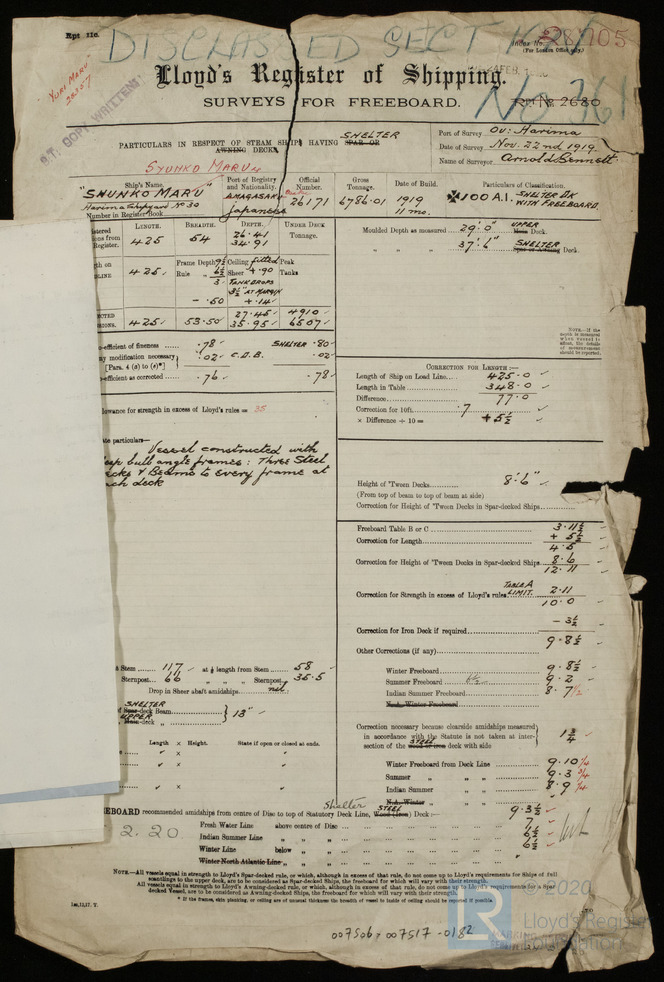 Rpt 11c.
DISCLASSED SECT
Index No. 28705
(For London Office only.)
YURI MARU
28557
Lloyd's Register of Shipping.
SURVEYS FOR FREEBOARD.
No 761
Rpt. No. 2680
PARTICULARS IN RESPECT OF STEAM SHIPS HAVING SPAR OR
SHELTER
AWNING DECKS.
Port of Survey Ov: Harima
Date of Survey Nov. 22nd 1919.
Name of Surveyor Arnold Bennett
SYUNKO MARU
Ship's Name.
"SHUNKO MARU"
Harima Shipyard No 30
Number in Register Book
Port of Registry and Nationality.
AMAGASAKI
Japanese
Official Number.
26171
Gross Tonnage.
6786.01
Date of Build.
1919
11 mo.
Particulars of Classification.
100 A.1. SHELTER DK
WITH FREEBOARD.
LENGTH. BREADTH. DEPTH. UNDER DECK TONNAGE.
425 54 26.41
34.91
Moulded Depth as measured 29'.0" UPPER Deck.
" " " 37'.6" SHELTER Deck.
425 Frame Depth 9½ Ceiling fitted Peak
Rule " 6½ Sheer 4.90 Tanks
3 TANK DROPS
3½" AT MARGIN
- .50 + .14
425 53.50 27.45 4910
35.95 6507
o-efficient of fineness .78 SHELTER .80
ny modification necessary .02 C.D.B. .02
[Para. 4 (a) to (e)*]
o-efficient as corrected .76 .78
NOTE.—If the depth is measured when vessel is afloat, the details of measurement should be reported.
CORRECTION FOR LENGTH:—
Length of Ship on Load Line 425.0
Length in Table 348.0
Difference 77.0
Correction for 10ft. .7
× Difference ÷ 10 = + 5½
lowance for strength in excess of Lloyd's rules = 35
ate particulars—
Vessel constructed with
eep bulb angle frames: Three Steel
ecks & Beams to every frame at
ach deck
Height of 'Tween Decks 8'.6"
(From top of beam to top of beam at side)
Correction for Height of 'Tween Decks in Spar-decked Ships
Freeboard Table B or C 3.11½
Correction for Length + 5½
4.5
Correction for Height of 'Tween Decks in Spar-decked Ships 8.6
12.11
Correction for Strength in excess of Lloyd's rules TABLE A LIMIT. 2.11
10.0
Correction for Iron Deck if required - 3½
9.8½
Other Corrections (if any)
Winter Freeboard 9.8½
Summer Freeboard 6½ 9.2
Indian Summer Freeboard 8.7½
N.A. Winter Freeboard
Stem 117 at ⅛ length from Stem 58
Sternpost 66 " " " Sternpost 35.5
Drop in Sheer abaft amidships nil
SHELTER
of Spar-deck Beam
UPPER } 13"
-deck "
Length × Height. State if open or closed at ends.
Correction necessary because clearside amidships measured
in accordance with the Statute is not taken at inter-
section of the STEEL wood or iron deck with side } 1¾
Winter Freeboard from Deck Line 9.10¼
Summer " " " 9.3¾
Indian " " " 8.9¼
N.A. Winter " "
EBOARD recommended amidships from centre of Disc to top of Statutory Deck Line, Shelter STEEL Wood (Iron) Deck:— 9.3½
2.20
Fresh Water Line above centre of Disc 7
Indian Summer Line " " " 6½
Winter Line below " " 6½
Winter North Atlantic Line " " "
NOTE.—All vessels equal in strength to Lloyd's Spar-decked rule, or which, although in excess of that rule, do not come up to Lloyd's requirements for Ships of full
scantlings to the upper deck, are to be considered as Spar-decked Ships, the freeboard for which will vary with their strength.
All vessels equal in strength to Lloyd's Awning-decked rule, or which, although in excess of that rule, do not come up to Lloyd's requirements for a Spar-
decked Vessel, are to be considered as Awning-decked Ships, the freeboard for which will vary with their strength.
* If the frames, skin planting, or ceiling are of unusual thickness the breadth of vessel to inside of ceiling should be reported if possible
1m,12,17. T.
007506 - 007517 - 0182
© 2020
Lloyd's Register
Foundation